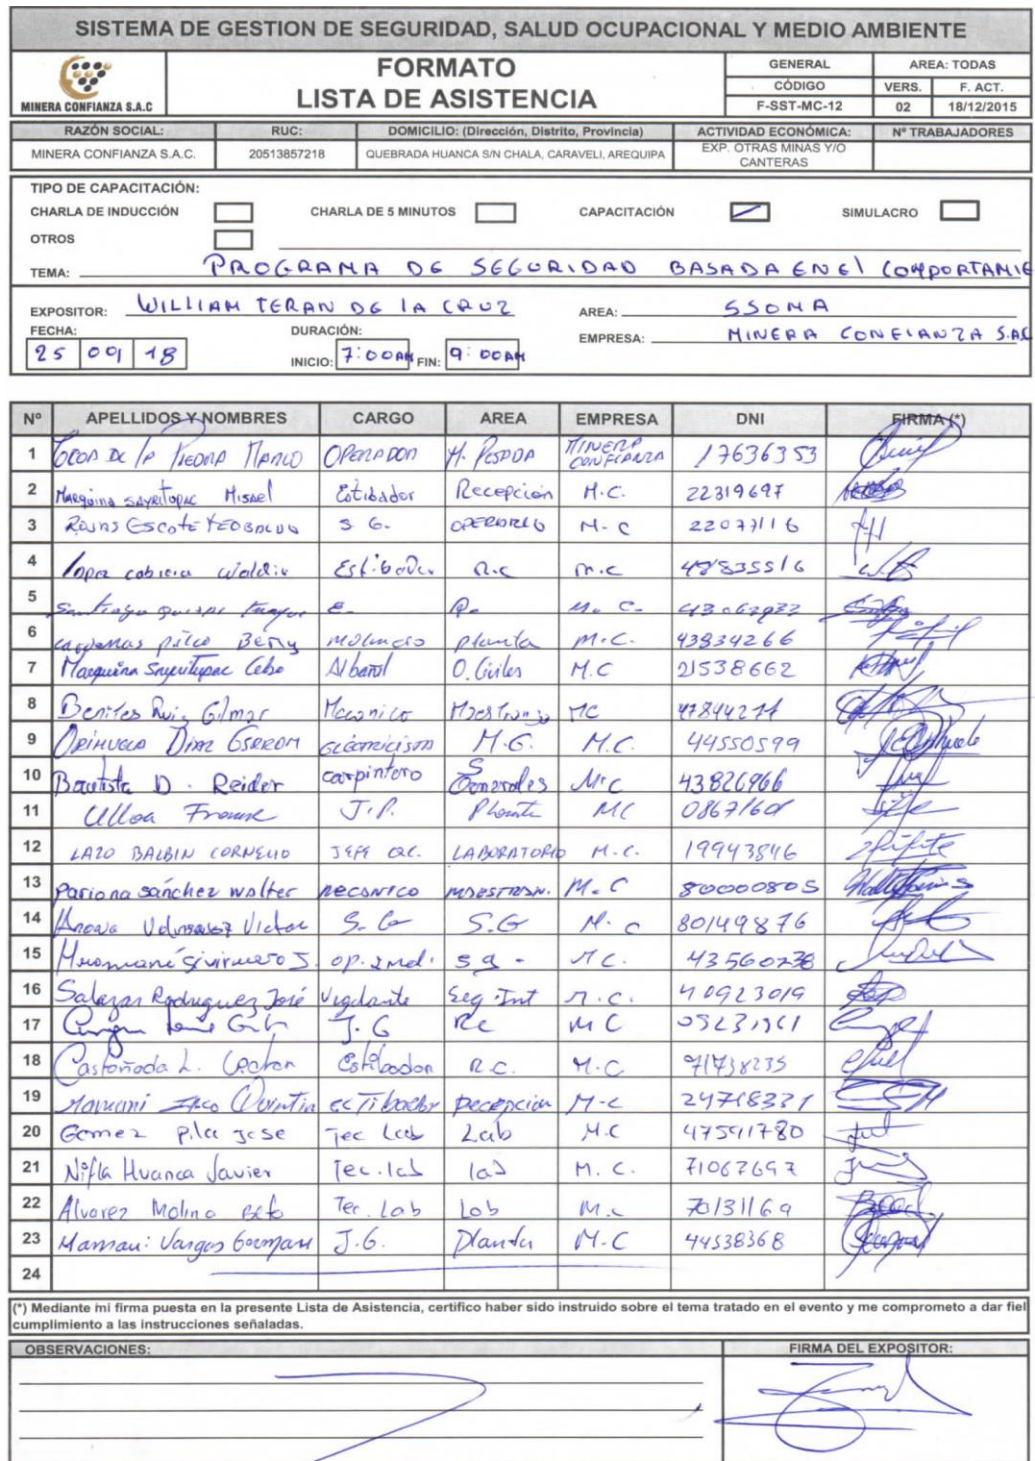 SISTEMA DE GESTION DE SEGURIDAD, SALUD OCUPACIONAL Y MEDIO AMBIENTE
MINERA CONFIANZA S.A.C
FORMATO
LISTA DE ASISTENCIA
GENERAL AREA: TODAS
CÓDIGO VERS. F. ACT.
F-SST-MC-12 02 18/12/2015
RAZÓN SOCIAL: RUC: DOMICILIO: (Dirección, Distrito, Provincia) ACTIVIDAD ECONÓMICA: Nº TRABAJADORES
MINERA CONFIANZA S.A.C. 20513857218 QUEBRADA HUANCA S/N CHALA, CARAVELI, AREQUIPA EXP. OTRAS MINAS Y/O
CANTERAS
TIPO DE CAPACITACIÓN:
CHARLA DE INDUCCIÓN CHARLA DE 5 MINUTOS CAPACITACIÓN SIMULACRO
OTROS
TEMA: PROGRAMA DE SEGURIDAD BASADA EN El COMPORTAMIE
EXPOSITOR: WILLIAM TERAN DE lA CRUZ AREA: SSOMA
FECHA: DURACIÓN: EMPRESA: MINERA CONFIANZA S.AC
25 09 18 INICIO: 7:00AM FIN: 9:00AM
Nº APELLIDOS Y NOMBRES CARGO AREA EMPRESA DNI FIRMA (*)
1 De la PIEDRA MARCO OPERADOR M. PESADA MINERA CONFIANZA 17636353
2 Marquina SAYRITUPAC MISAEL Estibador Recepción M.C. 22319697
3 ROJAS ESCOTE TEOBALDO S G. OPERARIO M-C 22077116
4 cabrera Waldir Estibador R.C m.c 48835516
5 Santiago E. R. M. C.
6 cardenas pilco Beny molinero planta M.C. 43934266
7 Marquina Sayritupac Celso Albañil O. Civiles M.C 21538662
8 Benites Ruiz Gilmar Mecanico Maestranza MC
9 ORIHUELA DIAZ electricista M.G. M.C. 44550599
10 Bautista D. Reider carpintero S Generales M.C 43826966
11 Ulloa J.P. Planta MC
12 LAZO BALBIN CORNELIO JEFE LABORATORIO M.C. 19943846
13 Pariona sánchez walter MECANICO MAESTRAN. M.C 80000805
14 Victor S.G S.G M.C 80149876
15 J. op. s g. M C. 43560738
16 Salazar Rodriguez José Vigilante Seg. Int M.C. 40923019
17 J. G Rc M C
18 Castañeda L. Estibador R.C. M.C. 71738235
19 Mamani Quintin ecTibador Recepcion M-C 24718331
20 Gomez Pila Jose Tec Lab Lab M.C 47591780
21 Nifla Huanca Javier Tec.lab lab M. C. 71067697
22 Alvarez Molina Beto Tec. Lab Lab M.C 70131169
23 Mamani Vargas German J.G. Planta M-C 44538368
24
(*) Mediante mi firma puesta en la presente Lista de Asistencia, certifico haber sido instruido sobre el tema tratado en el evento y me comprometo a dar fiel
cumplimiento a las instrucciones señaladas.
OBSERVACIONES: FIRMA DEL EXPOSITOR: